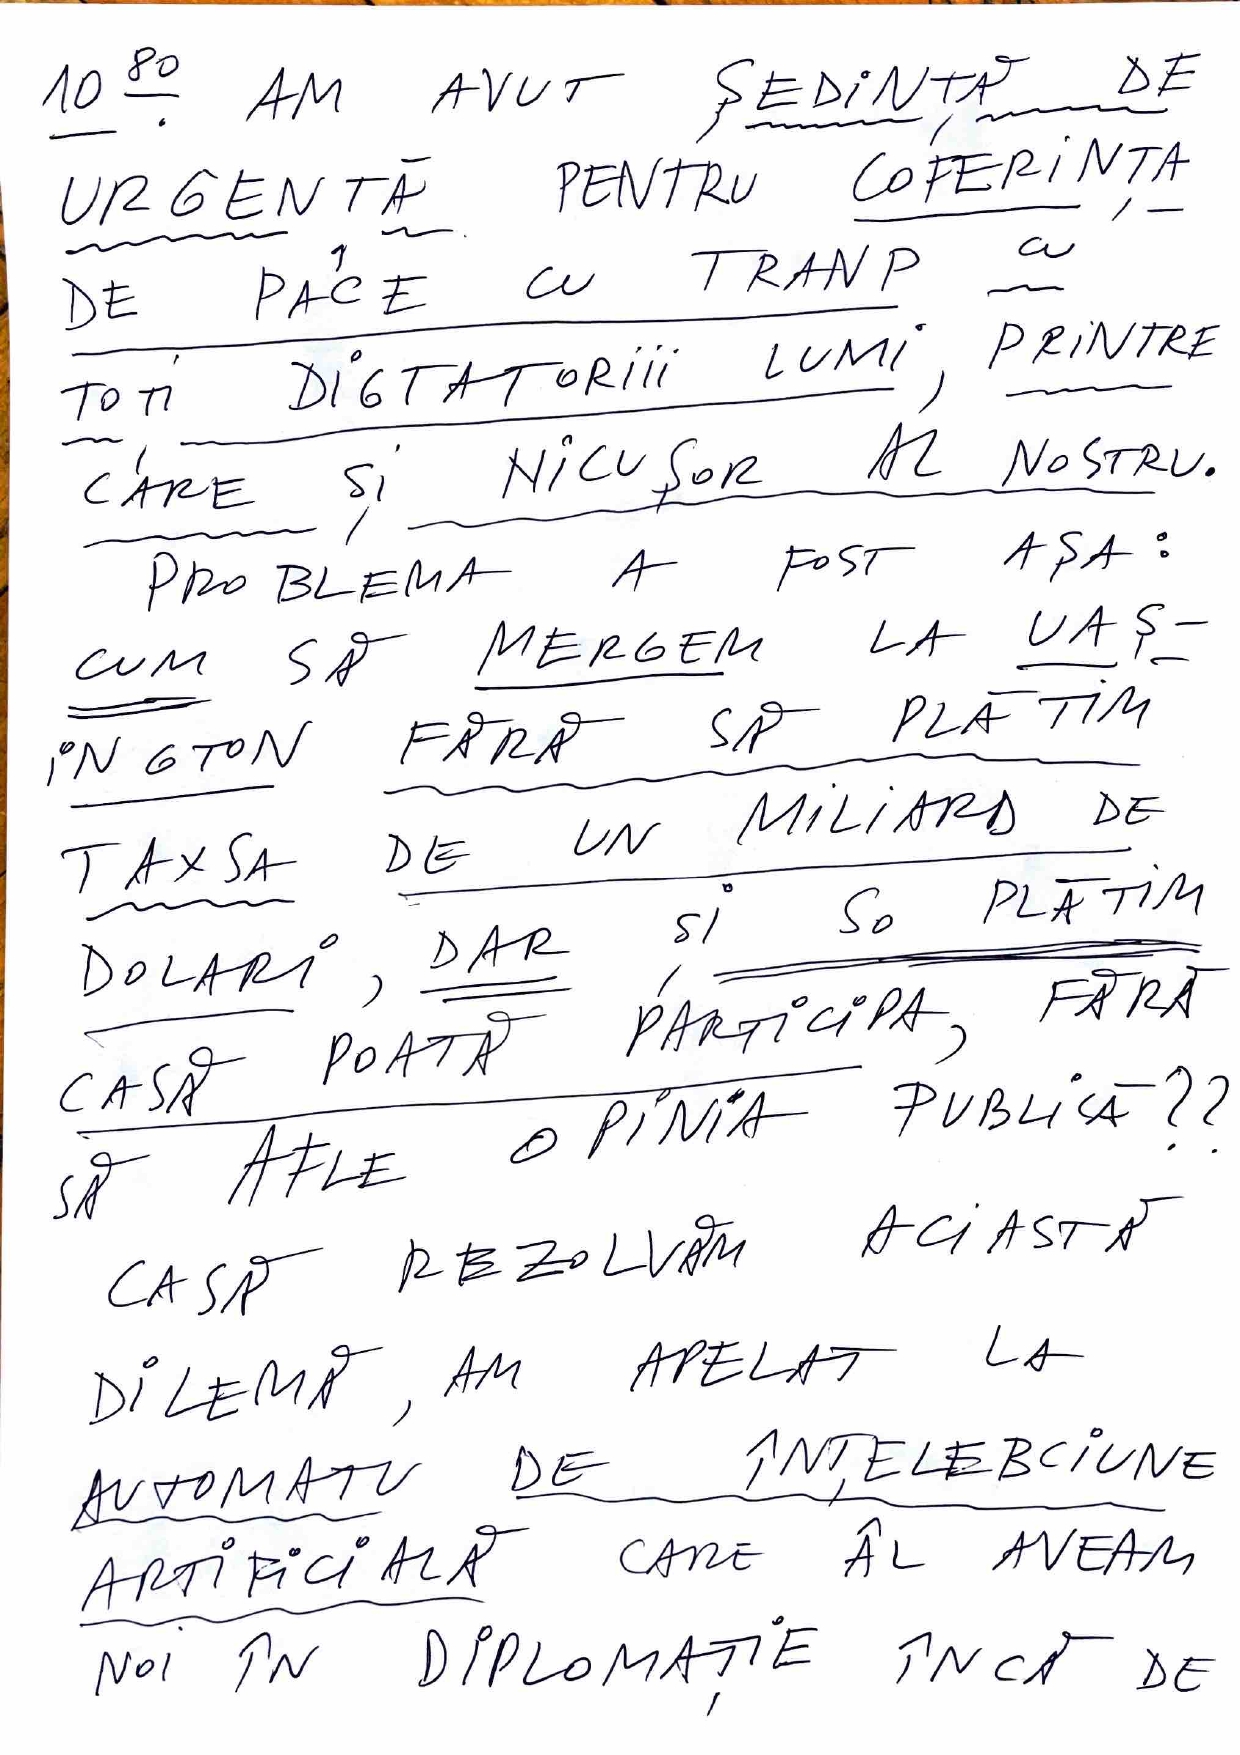 10 80. AM AVUT ȘEDINȚĂ DE
URGENTĂ PENTRU COFERINȚA
DE PACE CU TRANP CU
TOȚI DIGTATORIII LUMI, PRINTRE
CARE ȘI NICUȘOR AL NOSTRU.
PROBLEMA A FOST AȘA:
CUM SĂ MERGEM LA UAȘ-
INGTON FĂRĂ SĂ PLĂTIM
TAXSA DE UN MILIARD DE
DOLARI, DAR ȘI SO PLĂTIM
CASĂ POATĂ PARTICIPA, FĂRĂ
SĂ AFLE OPINIA PUBLICĂ??
CASĂ REZOLVĂM ACIASTĂ
DILEMĂ, AM APELAT LA
AUTOMATU DE ÎNȚELEBCIUNE
ARTIFICIALĂ CARE ÂL AVEAM
NOI ÎN DIPLOMAȚIE ÎNCĂ DE